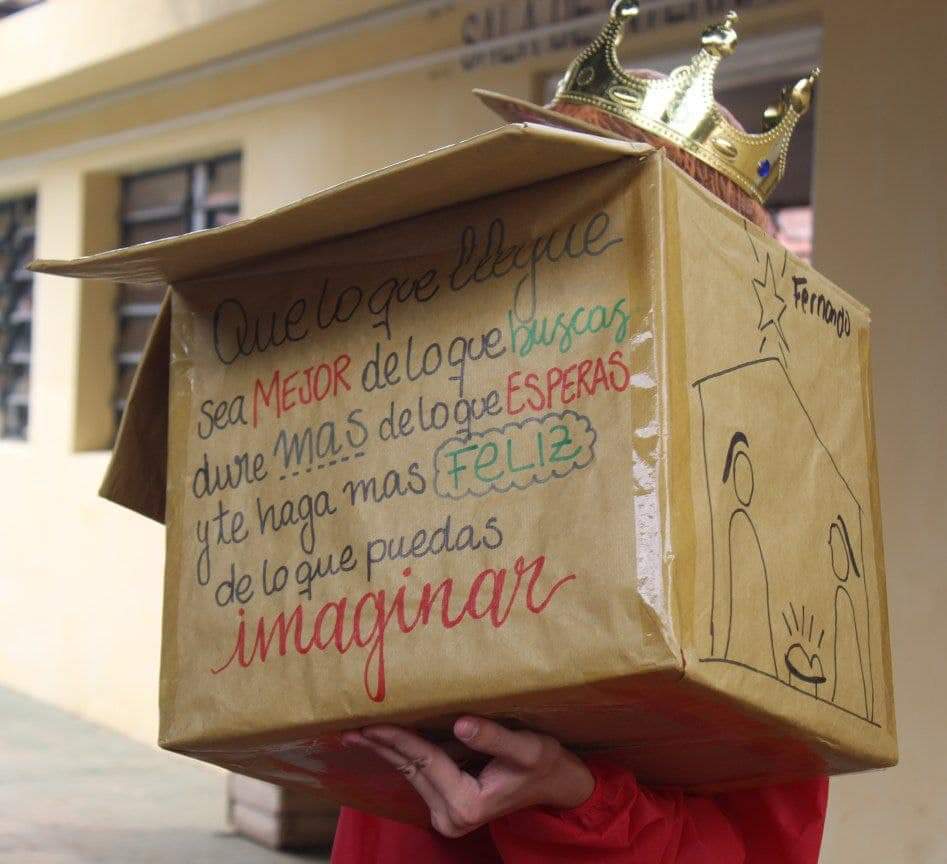 Que lo que llegue
sea MEJOR de lo que buscas
dure mas de lo que ESPERAS
y te haga mas FeLiZ
de lo que puedas
imaginar
Fernando